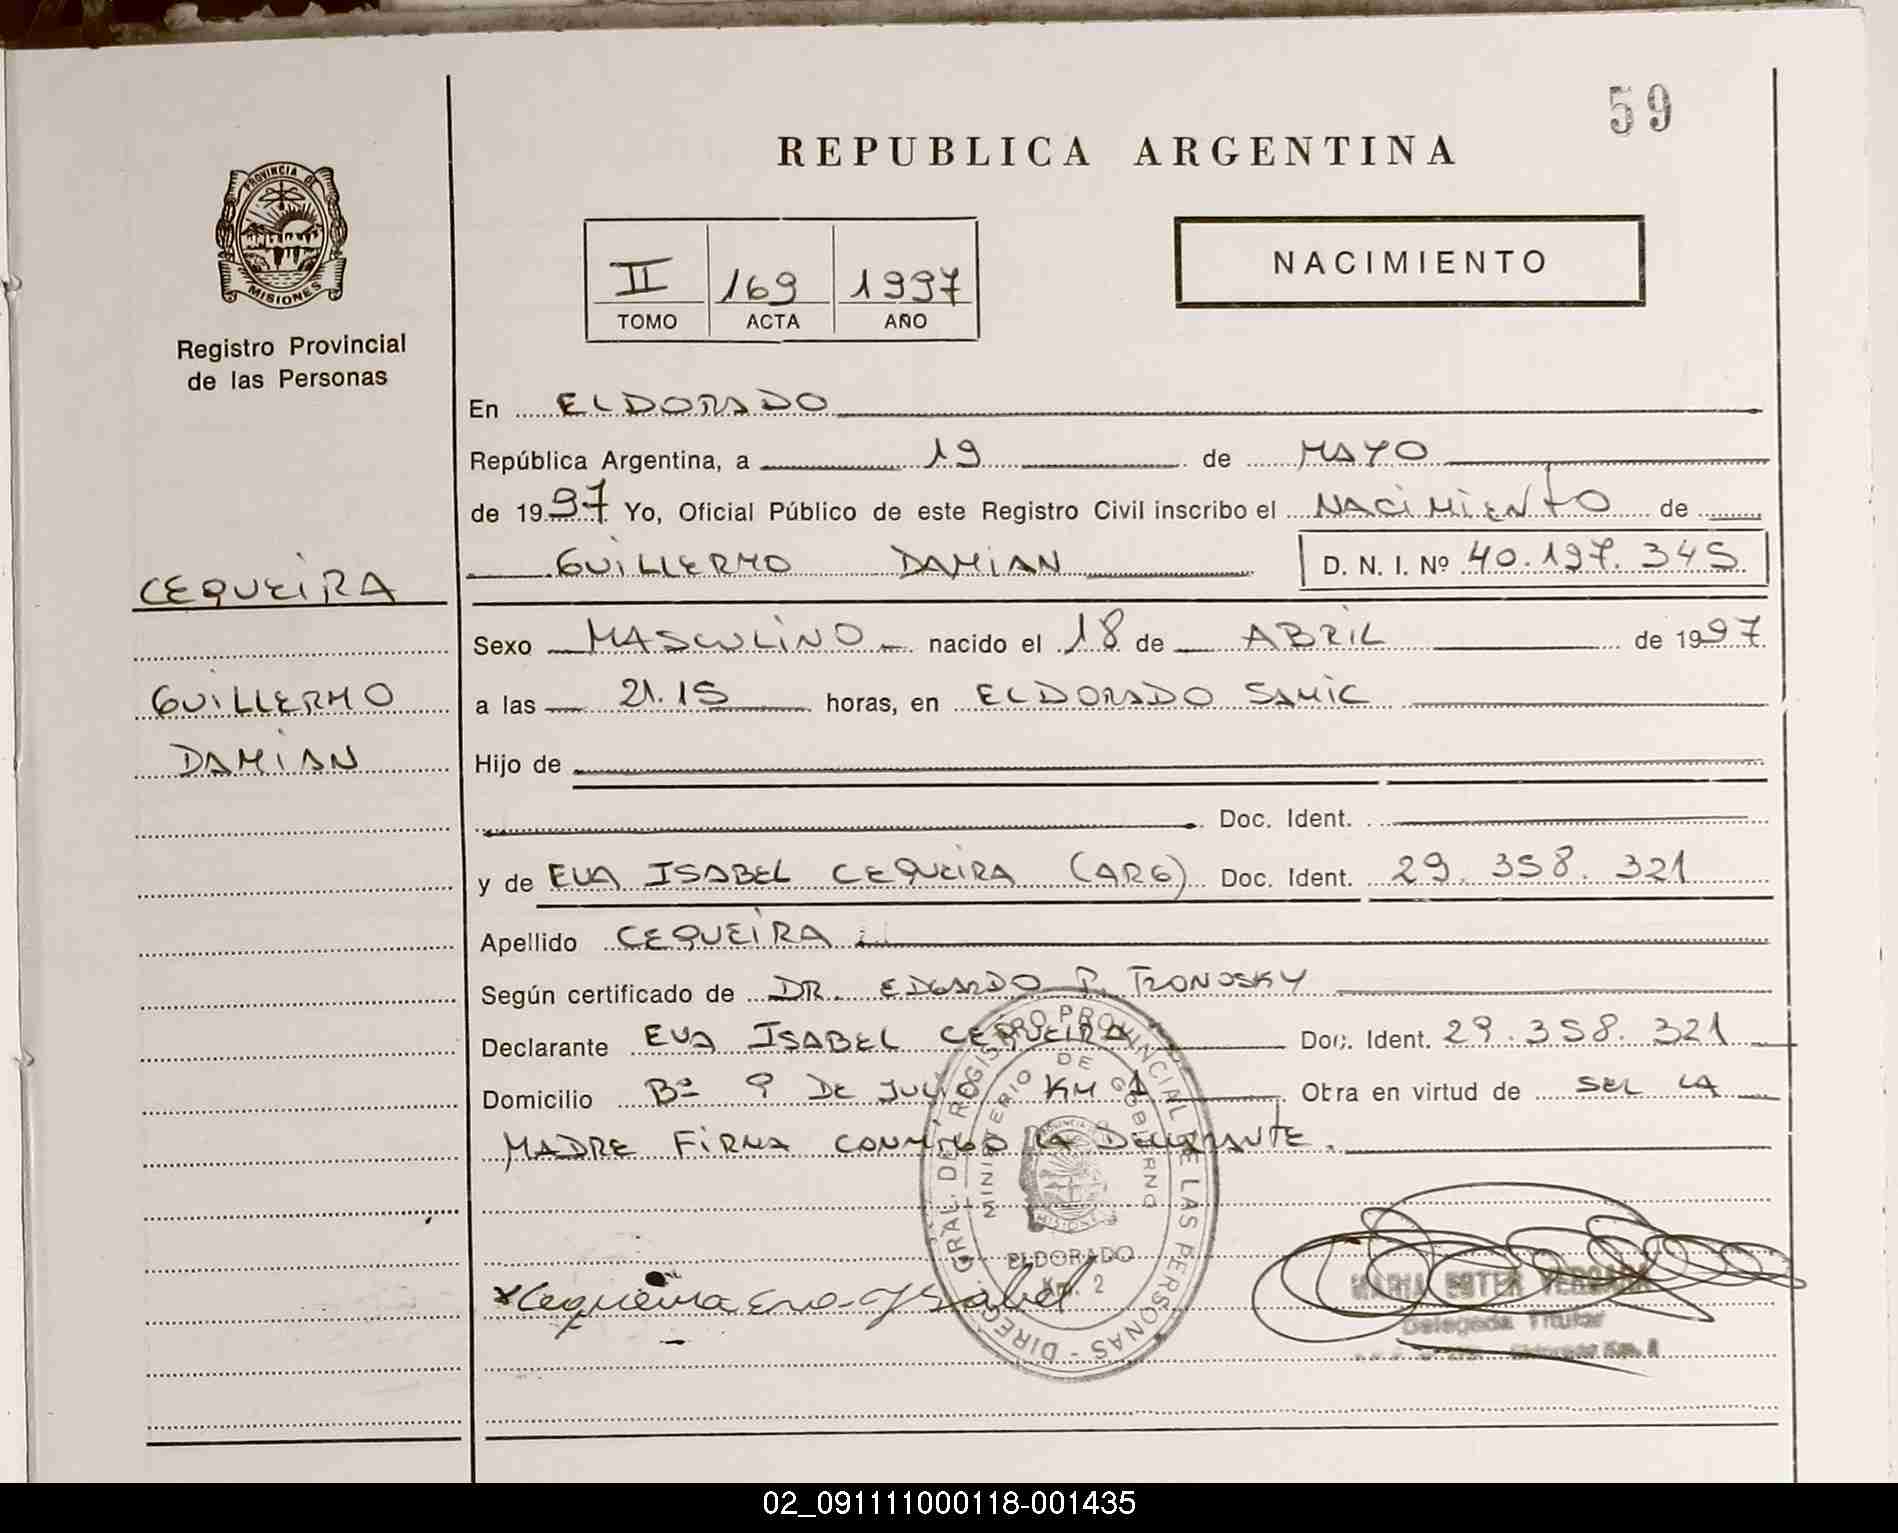 59
REPUBLICA ARGENTINA
PROVINCIA DE
MISIONES
Registro Provincial
de las Personas
II 169 1997
TOMO ACTA AÑO
NACIMIENTO
En ELDORADO
República Argentina, a 19 de MAYO
de 1997 Yo, Oficial Público de este Registro Civil inscribo el NACIMIENTO de
GUILLERMO DAMIAN D. N. I. Nº 40.197.345
CEQUEIRA
Sexo MASCULINO nacido el 18 de ABRIL de 1997
GUILLERMO
a las 21.15 horas, en ELDORADO SAMIC
DAMIAN
Hijo de
Doc. Ident.
y de EVA ISABEL CEQUEIRA (ARG) Doc. Ident. 29.358.321
Apellido CEQUEIRA
Según certificado de DR. EDGARDO P. TRONOSKY
Declarante EVA ISABEL CEQUEIRA Doc. Ident. 29.358.321
Domicilio Bº 9 DE JULIO KM 1 Obra en virtud de SER LA
MADRE FIRMA CONMIGO LA DECLARANTE.
DIREC. GRAL. DE REGISTRO PROVINCIAL DE LAS PERSONAS -
MINISTERIO DE GOBIERNO
PROVINCIA DE
MISIONES
ELDORADO
Km. 2
Cequeira Eva Ysabel
MARIA ESTER VERGARA
Delegada Titular
Eldorado Km. 2
02_091111000118-001435